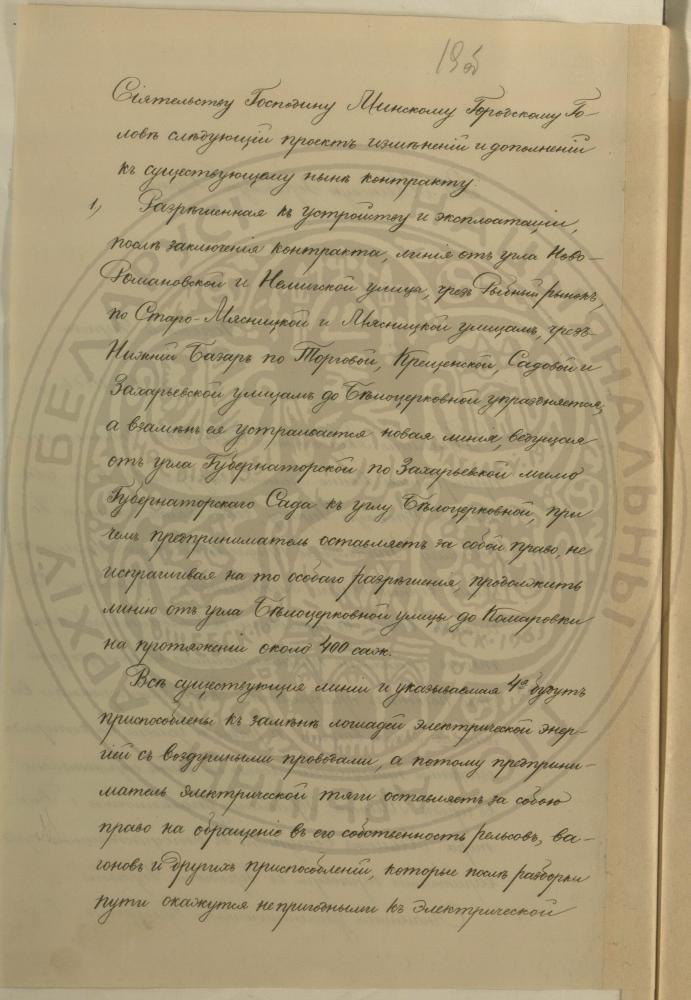 19 об
Сіятельству Господину Минскому Городскому Го-
ловѣ слѣдующій проектъ измѣненій и дополненій
къ существующему нынѣ контракту:
1, Разрѣшенная къ устройству и эксплоатаціи,
послѣ заключенія контракта, линія отъ угла Ново-
Романовской и Немигской улицъ, чрезъ Рыбный рынокъ,
по Старо-Мясницкой и Мясницкой улицамъ, чрезъ-
Нижній Базаръ по Торговой, Крещенской, Садовой и
Захарьевской улицамъ до Бѣлоцерковной упраздняется,
а взамѣнъ ея устраивается новая линія, ведущая
отъ угла Губернаторской по Захарьевкой мимо
Губернаторскаго Сада къ углу Бѣлоцерковной, при
чемъ предприниматель оставляетъ за собой право, не
испрашивая на то особаго разрѣшенія, продолжить
линію отъ угла Бѣлоцерковной улицы до Комаровки
на протяженіи около 400 саж.
Всѣ существующія линіи и указываемая 4ая будутъ
приспособлены къ замѣнѣ лошадей электрической энер-
гіей съ воздушными проводами, а потому предприни-
матель электрической тяги оставляетъ за собою
право на обращеніе въ его собственность рельсовъ, ва-
гоновъ и другихъ приспособленій, которые послѣ разборки
пути окажутся непригодными къ электрической
АРХІЎ БЕЛАРУСІ НАЦЫЯНАЛЬНЫ